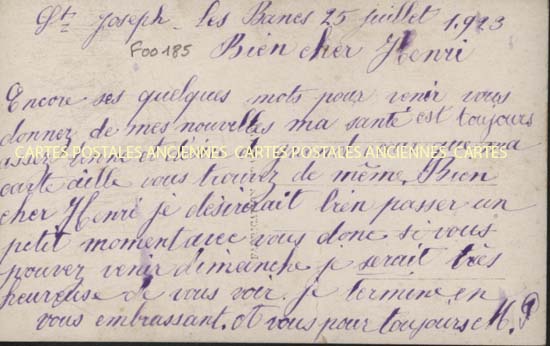 St Joseph. Les Bancs 25 juillet 1913
F00185
Bien cher Henri
Encore ses quelques mots pour venir vous
donnez de mes nouvelles ma santé est toujours
assez bonne
CARTES POSTALES ANCIENNES CARTES POSTALES ANCIENNES CARTES
carte aille vous trouvez de même. Bien
cher Henri je désirerait bien passer un
petit moment avec vous donc si vous
pouvez venir dimanche je serait très
heureuse de vous voir. je termine en
vous embrassant. et vous pour toujours M. P